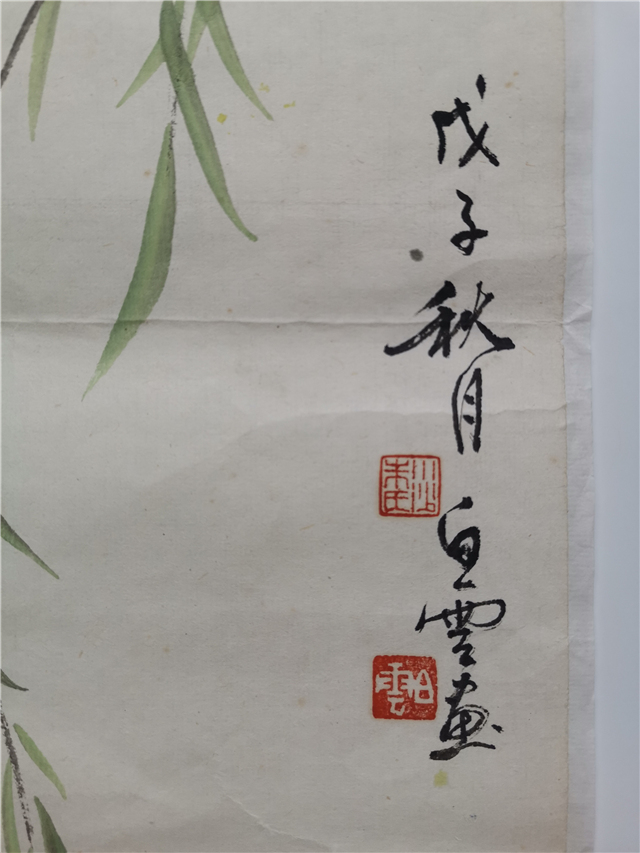 戊子秋月白雲畫